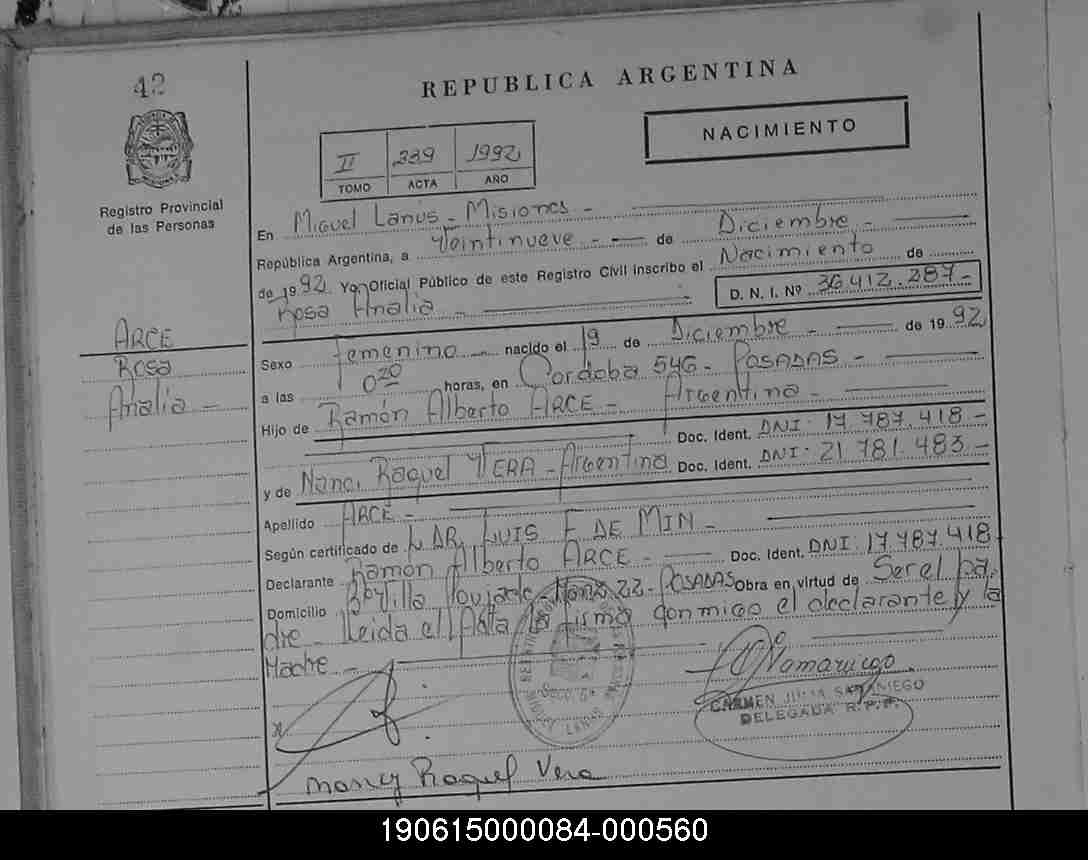 42
REPUBLICA ARGENTINA
NACIMIENTO
II 239 1992
TOMO ACTA AÑO
Registro Provincial
de las Personas
En Miguel Lanús - Misiones -
República Argentina, a Veintinueve - de Diciembre -
de 1992. Yo Oficial Público de este Registro Civil inscribo el Nacimiento de
Rosa Analia - D. N. I. Nº 36.412.287-
ARCE
Rosa
Analia -
Sexo Femenino - nacido el 19 de Diciembre - de 1992
a las 0 20 horas, en Cordoba 546 - POSADAS -
Hijo de Ramón Alberto ARCE - Argentina -
Doc. Ident. DNI: 17 787.418-
y de Nanci Raquel VERA - Argentina Doc. Ident. DNI: 21 781.483-
Apellido ARCE -
Según certificado de DR. LUIS F DE MIN -
Declarante Ramón Alberto ARCE - Doc. Ident. DNI: 17.787.418
Domicilio 22 - POSADAS Obra en virtud de Ser el pa-
dre - Leida el Acta la firma conmigo el declarante y la
Madre -
CARMEN JULIA SAMANIEGO
DELEGADA R.P.P.
Nancy Raquel Vera
190615000084-000560